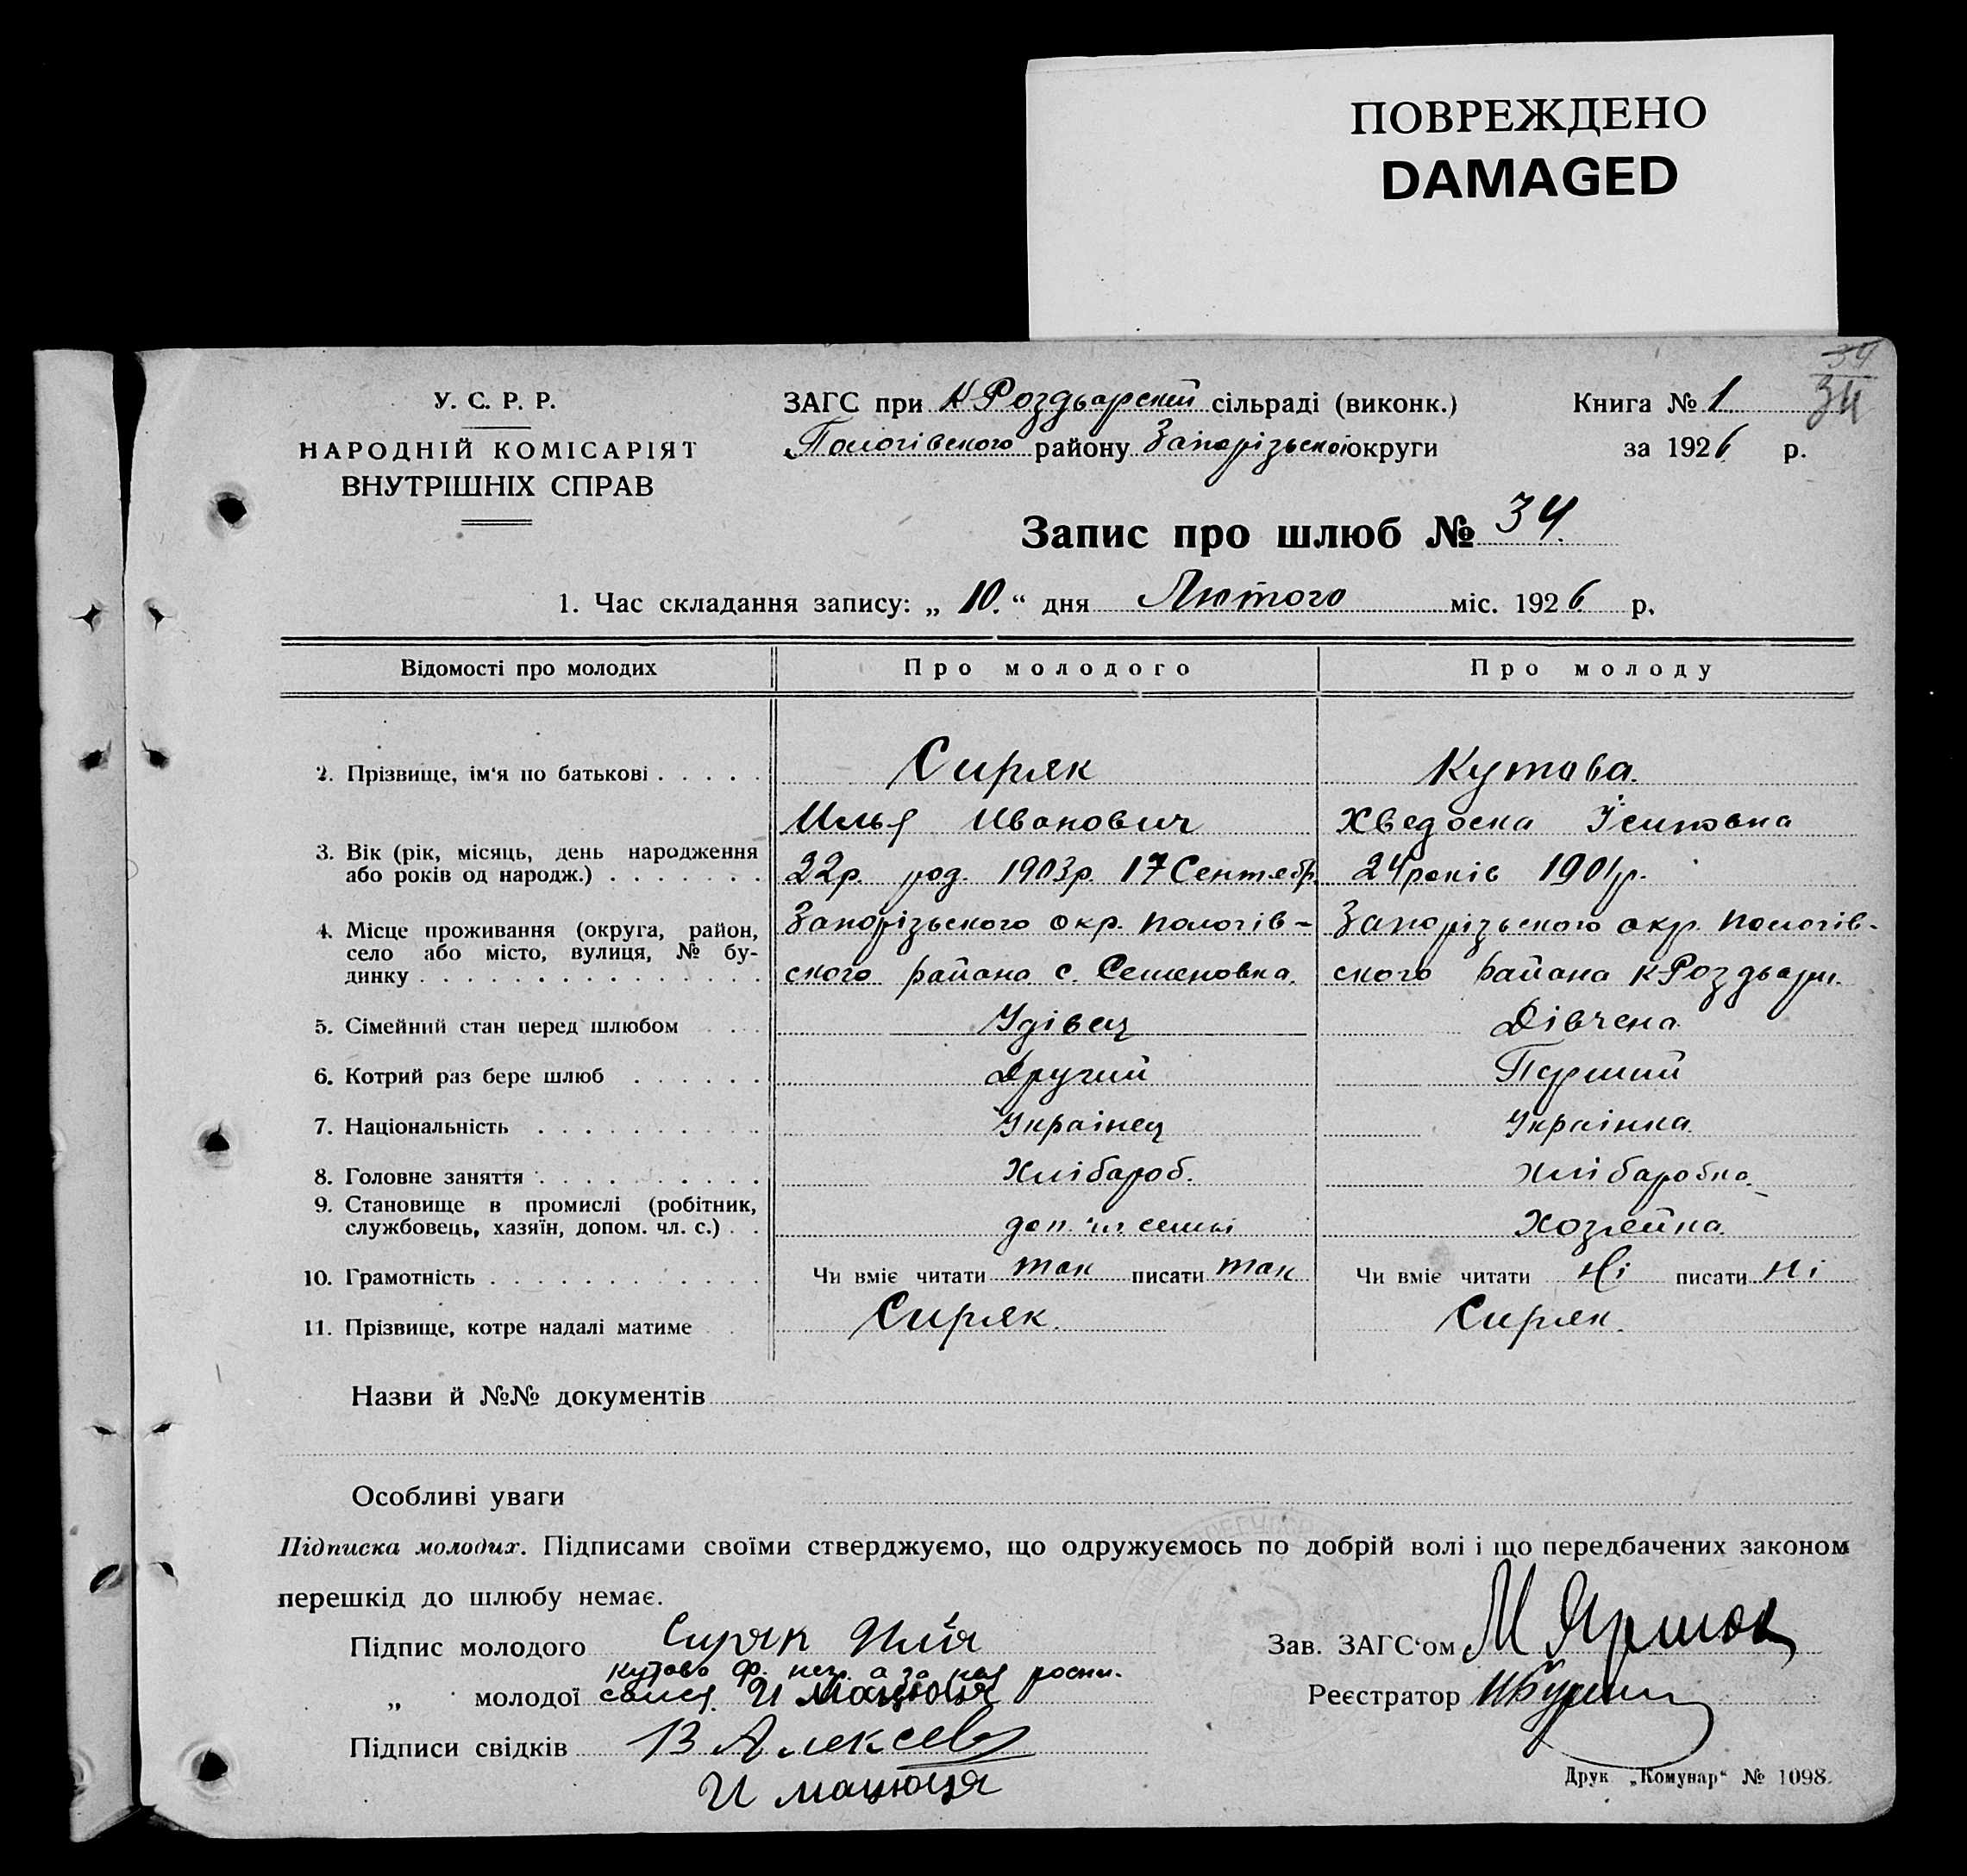 ПОВРЕЖДЕНО
DAMAGED
34
34
У. С. Р. Р.
НАРОДНІЙ КОМІСАРІЯТ
ВНУТРІШНІХ СПРАВ
ЗАГС при К Роздьорскій сільраді (виконк.)
Пологівского району Запорізької округи
Книга № 1.
за 1926 р.
Запис про шлюб № 34.
1. Час складання запису: „ 10. “ дня Лютого міс. 1926 р.
Відомості про молодих Про молодого Про молоду
2. Прізвище, ім‘я по батькові Сиряк Кутова.
Илья Иванович Хведоска Їсиповна
3. Вік (рік, місяць, день народження
або років од народж.) 22р. род. 1903р. 17 Сентебр. 24 років 1901р.
4. Місце проживання (округа, район,
село або місто, вулиця, № бу-
динку
Запорізьского окр. пологів-
ского района с. Семеновка.
Запорізьского окр. пологів-
ского района К-Роздьори.
5. Сімейний стан перед шлюбом Удівец Дівчена
6. Котрий раз бере шлюб Другий Перший
7. Національність Українец Українка.
8. Головне заняття Хлібароб. Хлібаробка.
9. Становище в промислі (робітник,
службовець, хазяїн, допом. чл. с.) доп. чл. семьі Хозяейка.
10. Грамотність Чи вміє читати так писати так Чи вміє читати Ні писати ні
11. Прізвище, котре надалі матиме Сиряк. Сиряк.
Назви й №№ документів
Особливі уваги
Підписка молодих. Підписами своїми стверджуємо, що одружуємось по добрій волі і що передбачених законом
перешкід до шлюбу немає.
Підпис молодого Сиряк Илія
Кутова ф. нег. а за нея росп.
„ молодої И Мацюця
Підписи свідків В Алексеев
И мацюця
Зав. ЗАГС‘ом М
Реєстратор
Друк „Комунар“ № 1098.